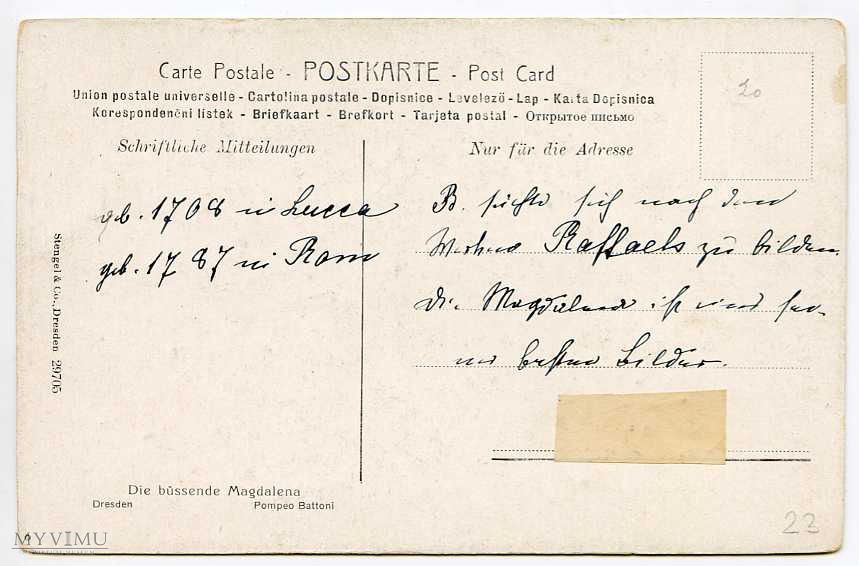 Carte Postale - POSTKARTE - Post Card
Union postale universelle - Cartolina postale - Dopisnice - Levelező - Lap - Karta Dopisnica
Korespondenční listek - Briefkaart - Brefkort - Tarjeta postal - Открытое письмо
Schriftliche Mitteilungen
Nur für die Adresse
20
geb. 1708 in Lucca
geb. 1787 in Rom
B. suchte sich nach den
Werken Raffaels zu bilden.
Die Magdalena ist eines sei-
ner besten Bilder.
Stengel & Co., Dresden 29705
Die büssende Magdalena
Dresden Pompeo Battoni
23
MYVIMU